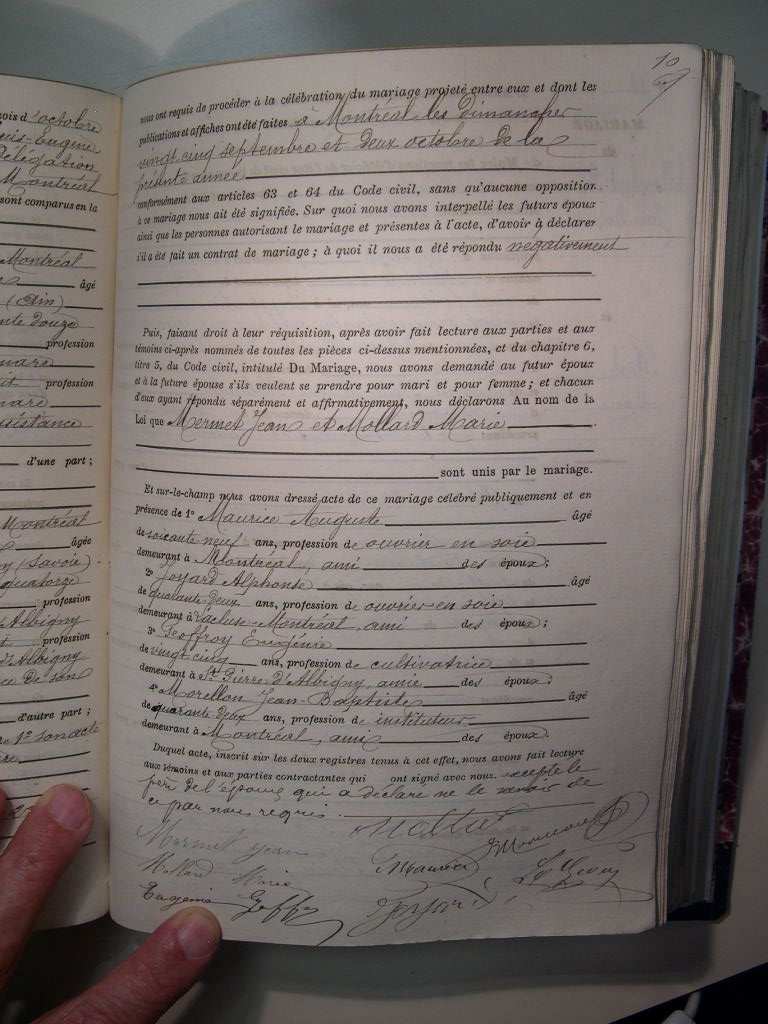 ois d'octobre
uis-Eugène
Délégation
Montréal
sont comparus en la
Montréal
âgé
(Ain)
nte douze
profession
nare
it profession
nare
sistance
d'une part ;
Montréal
âgée
y (Savoie)
quatorze
profession
d'Albigny
t profession
d'Albigny
ce de son
d'autre part ;
1° son acte
10
nous ont requis de procéder à la célébration du mariage projeté entre eux et dont les
publications et affiches ont été faites à Montréal les dimanches
vingt cinq septembre et deux octobre de la
présente année
conformément aux articles 63 et 64 du Code civil, sans qu'aucune opposition
à ce mariage nous ait été signifiée. Sur quoi nous avons interpellé les futurs époux
ainsi que les personnes autorisant le mariage et présentes à l'acte, d'avoir à déclarer
s'il a été fait un contrat de mariage ; à quoi il nous a été répondu négativement
Puis, faisant droit à leur réquisition, après avoir fait lecture aux parties et aux
témoins ci-après nommés de toutes les pièces ci-dessus mentionnées, et du chapitre 6,
titre 5, du Code civil, intitulé Du Mariage, nous avons demandé au futur époux
et à la future épouse s'ils veulent se prendre pour mari et pour femme ; et chacun
d'eux ayant répondu séparément et affirmativement, nous déclarons Au nom de la
Loi que Mermet Jean et Mollard Marie
sont unis par le mariage.
Et sur-le-champ nous avons dressé acte de ce mariage célébré publiquement et en
présence de 1° Maurice Auguste âgé
de soixante neuf ans, profession de ouvrier en soie
demeurant à Montréal, ami des époux ;
2° Joyard Alphonse âgé
de quarante deux ans, profession de ouvrier en soie
demeurant à Montréal, ami des époux ;
3° Geoffroy Eugénie
de vingt cinq ans, profession de cultivatrice
demeurant à St Pierre d'Albigny, amie des époux ;
4° Morellon Jean-Baptiste âgé
de quarante deux ans, profession de instituteur
demeurant à Montréal, ami des époux.
Duquel acte, inscrit sur les deux registres tenus à cet effet, nous avons fait lecture
aux témoins et aux parties contractantes qui ont signé avec nous excepté le
père de l'époux qui a déclaré ne le savoir de
ce par nous requis.
Mermet Jean
Mollard Marie
Maurice
Eugénie
Joyard